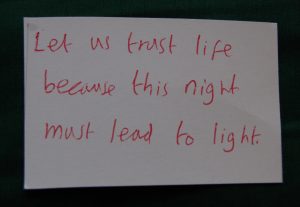 Let us trust life
because this night
must lead to light.